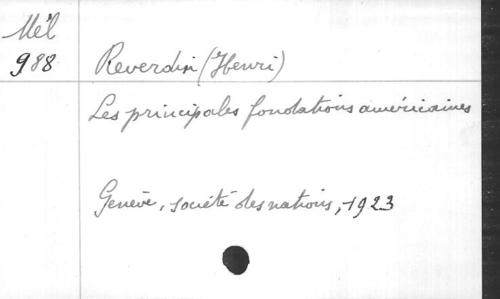 Mél
988
Reverdin (Henri)
Les principales fondations américaines
Genève, société des nations, 1923